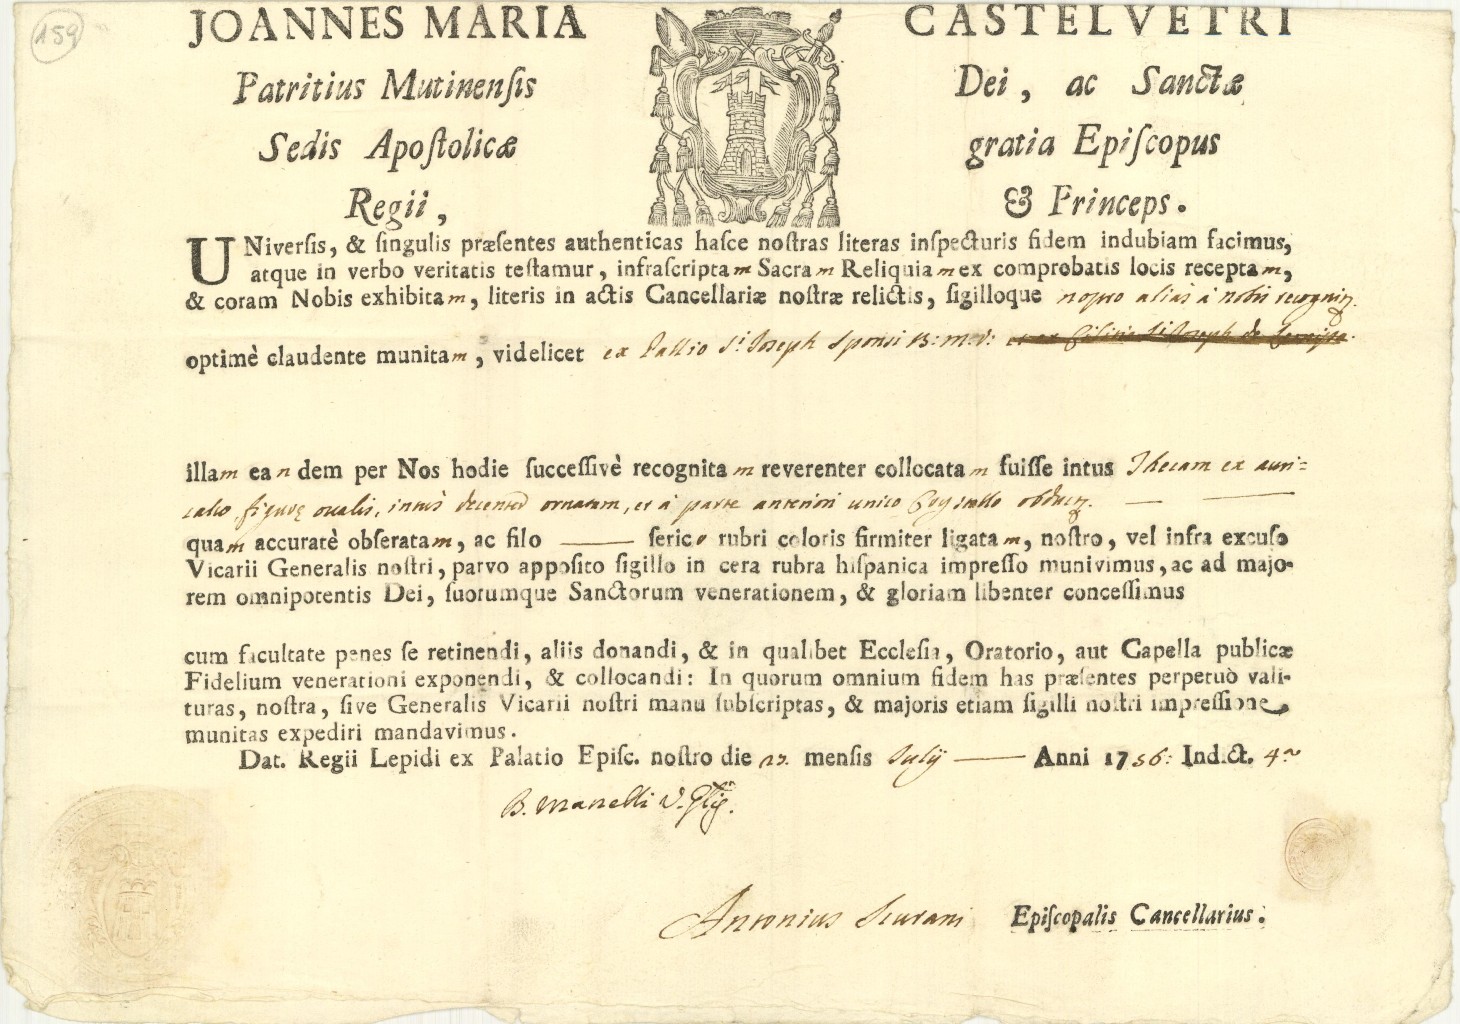 159
JOANNES MARIA CASTELVETRI
Patritius Mutinensis Dei, ac Sanctæ
Sedis Apostolicæ gratia Episcopus
Regii, & Princeps.
UNiversis, & singulis præsentes authenticas hasce nostras literas inspecturis fidem indubiam facimus,
atque in verbo veritatis testamur, infrascriptam Sacram Reliquiam ex comprobatis locis receptam,
& coram Nobis exhibitam, literis in actis Cancellariæ nostræ relictis, sigilloque nostro alias à nobis
optimè claudente munitam, videlicet ex Pallio S.i Joseph Sponsi B: M: V:
illam eandem per Nos hodie successivè recognitam reverenter collocatam fuisse intus Thecam ex auri=
calco, figuræ ovalis, intus ornatam, et à parte anteriori unico Crystallo
quam accuratè obseratam, ac filo serico rubri coloris firmiter ligatam, nostro, vel infra excuso
Vicarii Generalis nostri, parvo apposito sigillo in cera rubra hispanica impresso munivimus, ac ad majo-
rem omnipotentis Dei, suorumque Sanctorum venerationem, & gloriam libenter concessimus
cum facultate penes se retinendi, aliis donandi, & in qualibet Ecclesia, Oratorio, aut Capella publicæ
Fidelium venerationi exponendi, & collocandi: In quorum omnium fidem has præsentes perpetuò vali-
turas, nostra, sive Generalis Vicarii nostri manu subscriptas, & majoris etiam sigilli nostri impressione
munitas expediri mandavimus.
Dat. Regii Lepidi ex Palatio Episc. nostro die mensis Julij Anni 1756: Indict. 4.a
B. Manelli V.
Antonius Scurani Episcopalis Cancellarius.